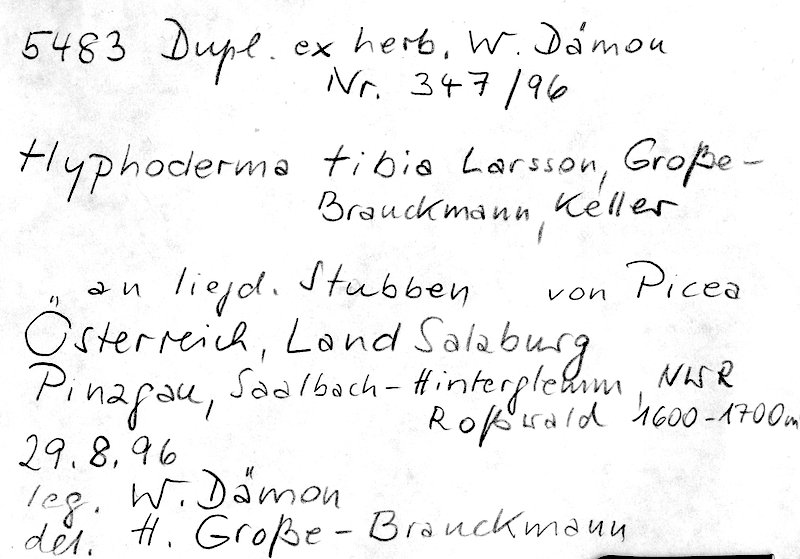 5483 Dupl. ex herb. W. Dämon
Nr. 347/96
Hyphoderma tibia Larsson, Große-
Brauckmann, Keller
an liegd. Stubben von Picea
Österreich, Land Salzburg
Pinzgau, Saalbach-Hinterglemm, NWR
Roßwald 1600-1700m
29.8.96
leg. W. Dämon
det. H. Große-Brauckmann